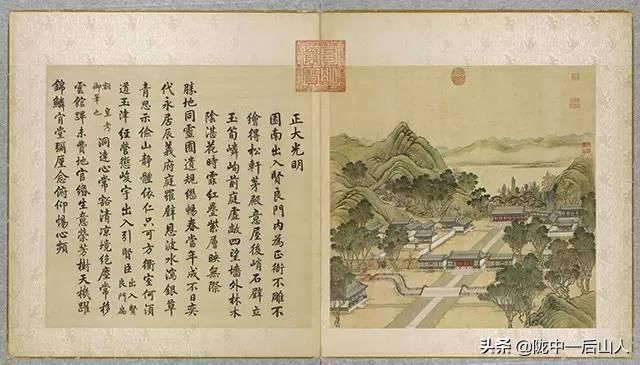 正大光明
園南出入賢良門內為正衙不雕不
繪得松軒茅殿意屋後峭石壁立
玉筍嶙峋前庭虛敞四望墻外林木
陰湛花時霏紅疊紫層映無際
勝地同靈囿遺規繼暢春當年成不日奕
代永居辰義府庭羅壁恩波水瀉銀草
青思示儉山靜體依仁只可方衢室何須
道玉津經營懋峻宇出入引賢臣出入賢良門為
皇考御筆也洞達心常豁清涼境絕塵常移
雲館蹕未費地官緡生意榮芳樹天機躍
錦鱗肯堂彌厪念俯仰惕心頻
头条@陇中一后山人